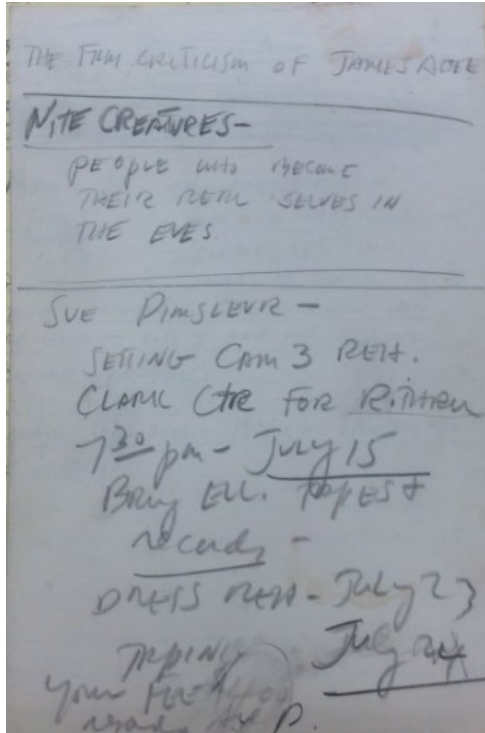 THE FILM CRITICISM OF JAMES AGEE
NITE CREATURES-
PEOPLE WHO BECOME
THEIR REAL SELVES IN
THE EVES.
SUE DIMSLEUR -
SETTING CAM 3 REH.
CLARK CTR FOR
7 30 pm - July 15
Bring Ell. tapes &
records -
DRESS REH - July 23
TAPING July 24
your